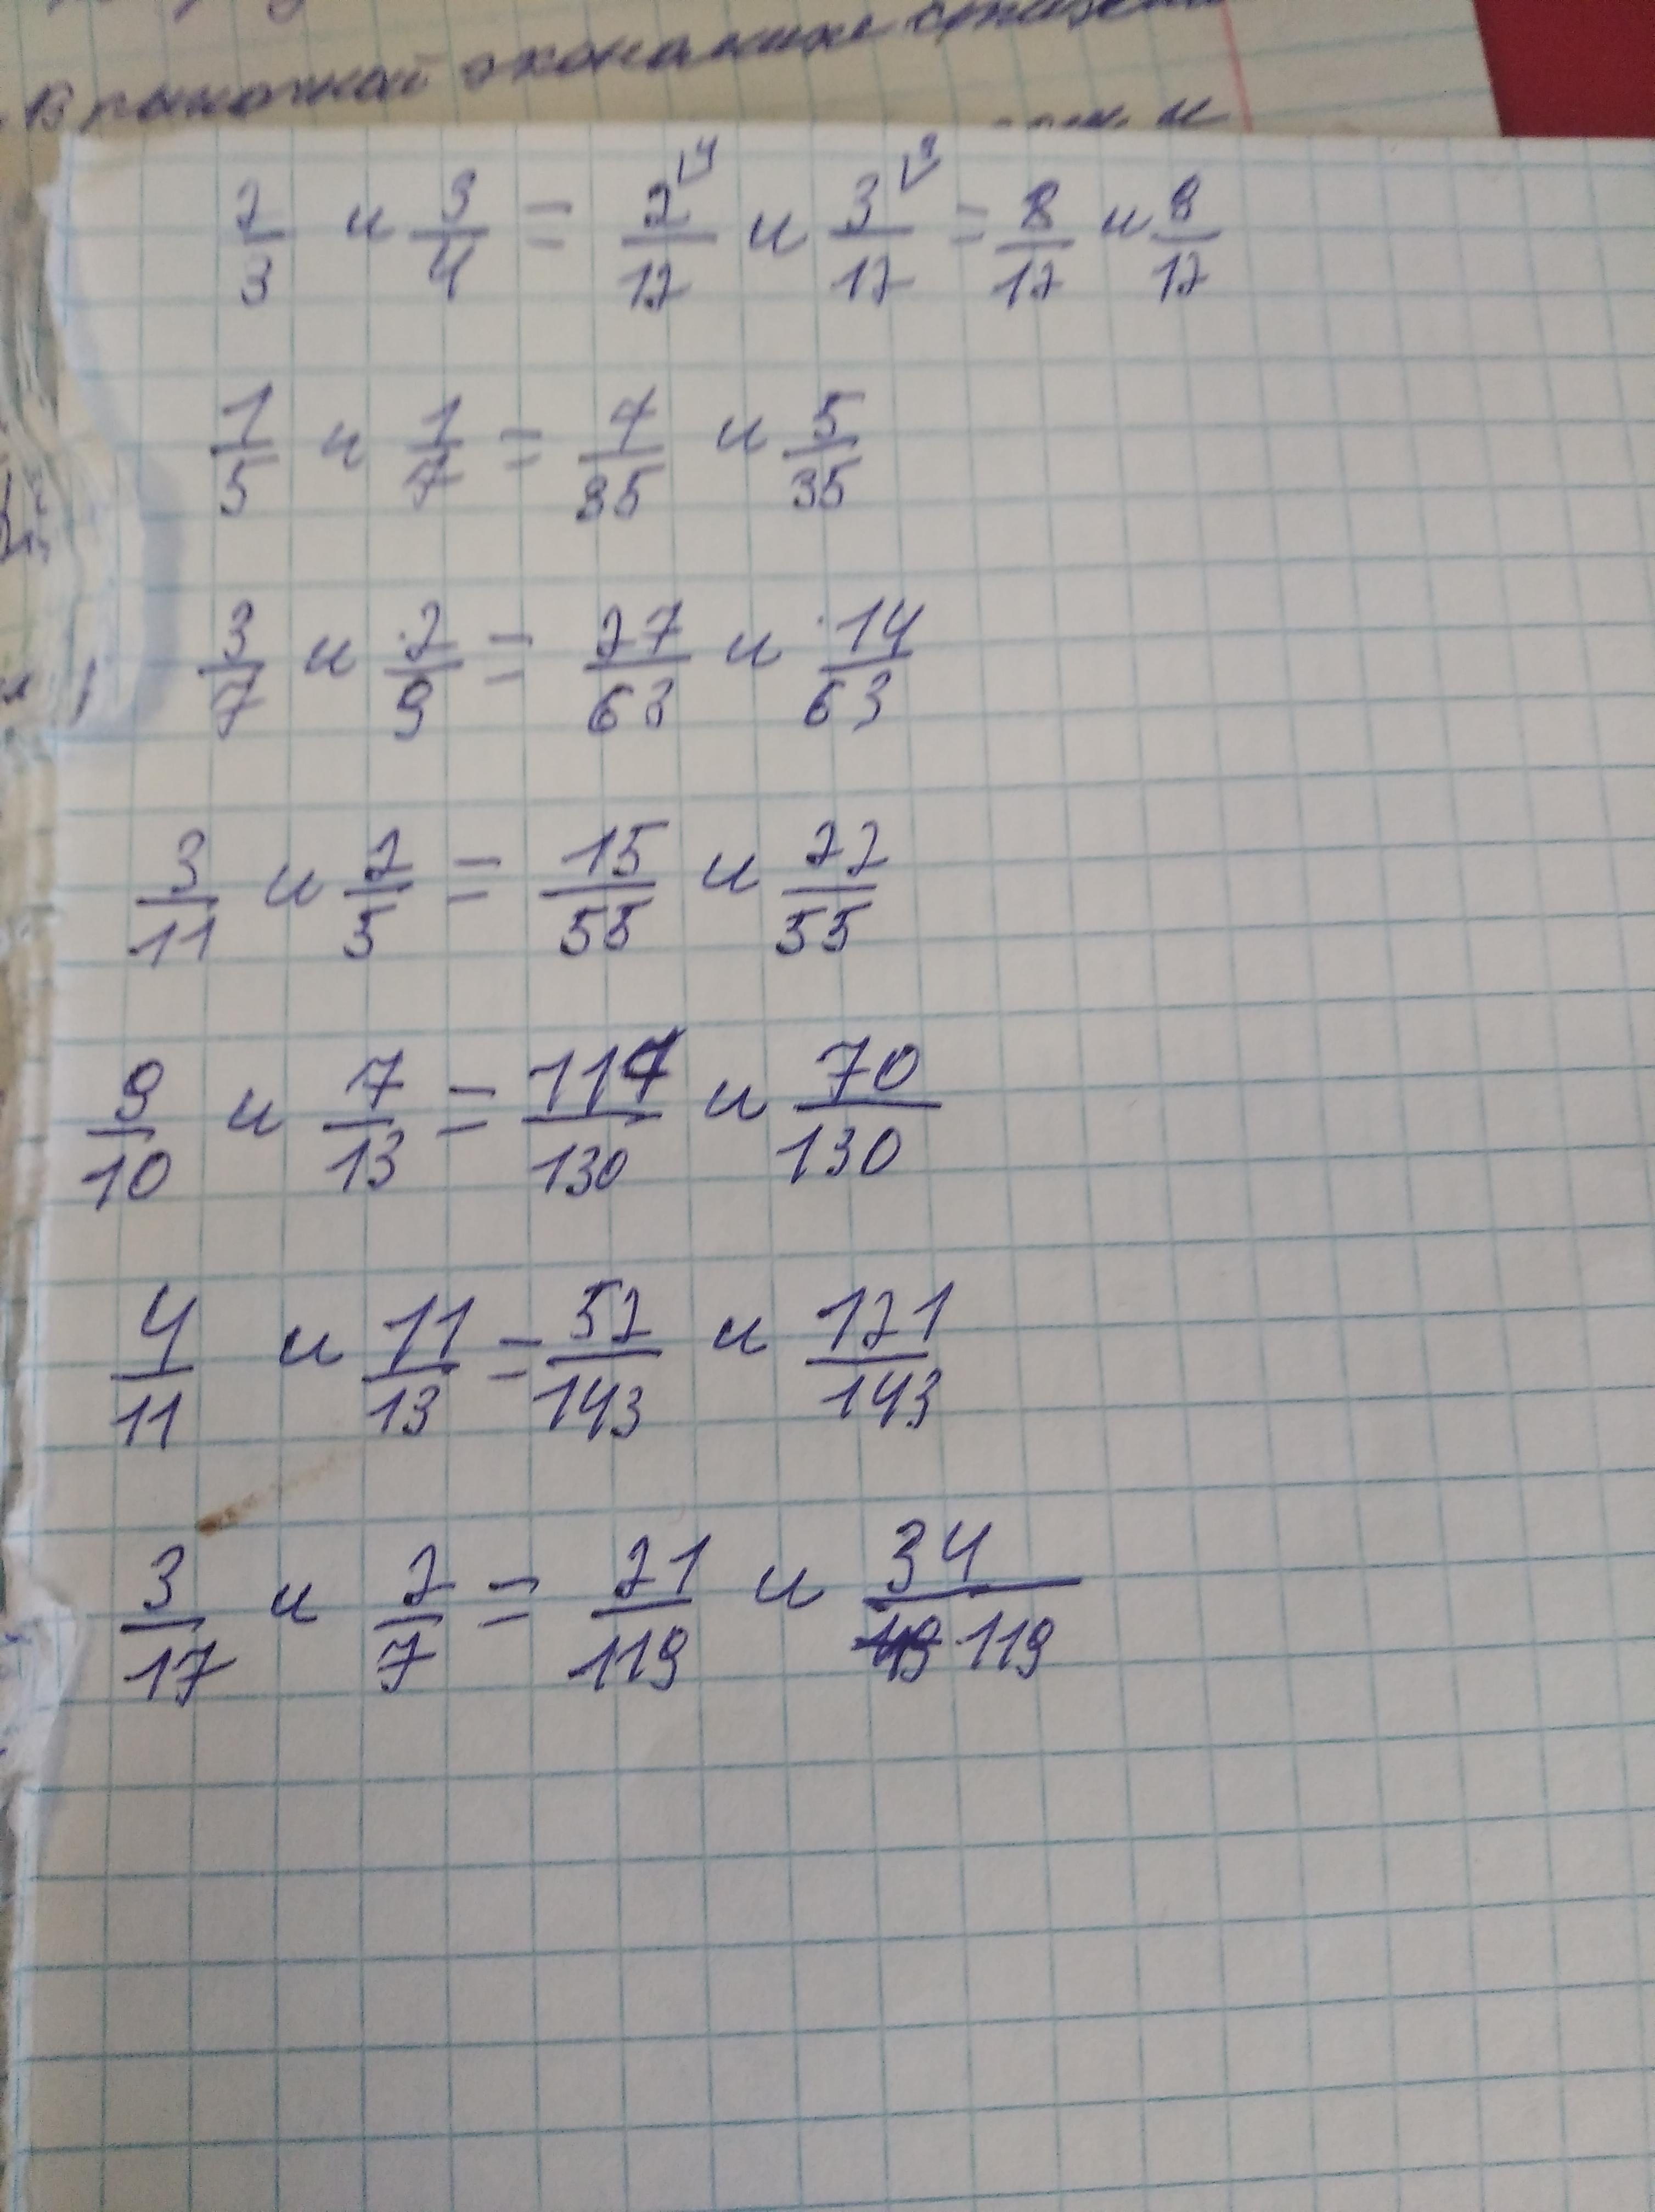 В рыночной экономике
и
2/3 и 3/4 = 2⌞4/12 и 3⌞3/12 = 8/12 и 9/12
1/5 и 1/7 = 7/35 и 5/35
3/7 и 2/9 = 27/63 и 14/63
3/11 и 2/5 = 15/55 и 22/55
9/10 и 7/13 = 117/130 и 70/130
4/11 и 11/13 = 52/143 и 121/143
3/17 и 2/7 = 21/119 и 34/119